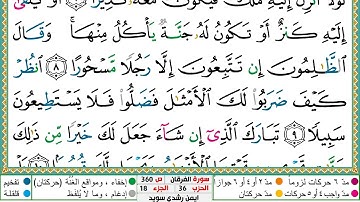 لَوْلَا أُنزِلَ إِلَيْهِ مَلَكٌ فَيَكُونَ مَعَهُۥ نَذِيرًا ۝٧ أَوْ يُلْقَىٰٓ
إِلَيْهِ كَنزٌ أَوْ تَكُونُ لَهُۥ جَنَّةٌ يَأْكُلُ مِنْهَا ۚ وَقَالَ
ٱلظَّـٰلِمُونَ إِن تَتَّبِعُونَ إِلَّا رَجُلًا مَّسْحُورًا ۝٨ ٱنظُرْ
كَيْفَ ضَرَبُوا۟ لَكَ ٱلْأَمْثَـٰلَ فَضَلُّوا۟ فَلَا يَسْتَطِيعُونَ
سَبِيلًا ۝٩ تَبَارَكَ ٱلَّذِىٓ إِن شَآءَ جَعَلَ لَكَ خَيْرًا مِّن ذَٰلِكَ
مدّ ٦ حركات لزوماً مدّ ٢ أو ٤ أو ٦ جوازاً سورة الفرقان ص 360 إخفاء، ومواقع الغُنَّة (حركتان) تفخيم
مدّ واجب ٤ أو ٥ حركات مدّ حركتان الحزب 36 الجزء 18 إدغام، وما لا يُلفَظ قلقلة
ايمن رشدي سويد